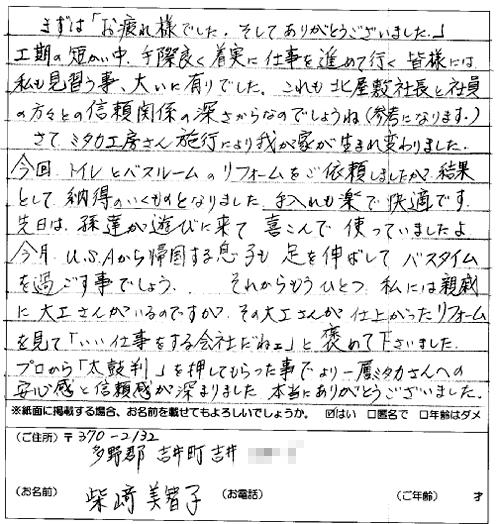 まずは「お疲れ様でした。そしてありがとうございました。」
工期の短かい中、手際良く着実に仕事を進めて行く皆様には
私も見習う事、大いに有りでした。これも北屋敷社長と社員
の方々との信頼関係の深さからなのでしょうね(参考になります。)
さて、ミタカ工房さん施行により我が家が生まれ変わりました。
今回、トイレとバスルームのリフォームをご依頼しましたが、結果
として納得のいくものとなりました。手入れも楽で快適です。
先日は、孫達が遊びに来て喜こんで使っていましたよ
今月、U.S.Aから帰国する息子も足を伸ばしてバスタイム
を過ごす事でしょう。 それからもうひとつ、私には親戚
に大工さんがいるのですが、その大工さんが仕上がったリフォーム
を見て「いい仕事をする会社だねェ」と褒めて下さいました。
プロから「太鼓判」を押してもらった事でより一層ミタカさんへの
安心感と信頼感が深まりました。本当にありがとうございました。
※紙面に掲載する場合、お名前を載せてもよろしいでしょうか。 ☑はい □匿名で □年齢はダメ
(ご住所)〒370-2132
多野郡 吉井町 吉井
(お名前) 柴﨑 美智子 (お電話) (ご年齢) 才